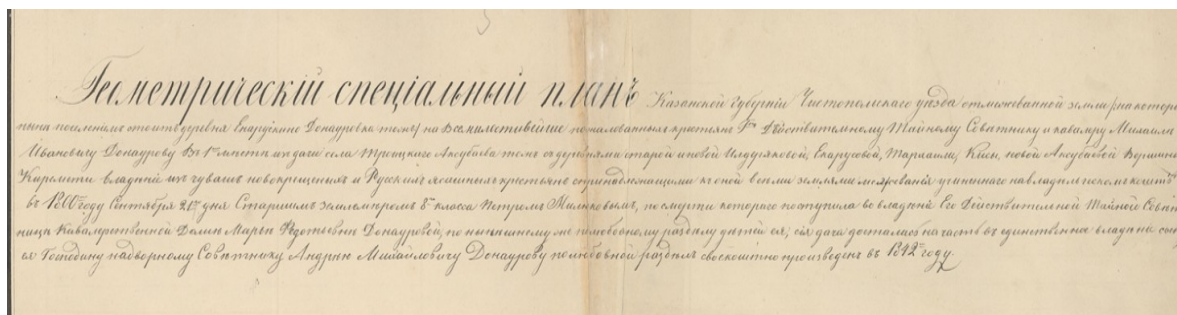 Геометрическій спеціальный планъ Казанской Губерніи Чистопольскаго уѣзда отмежеванной земли на которой
нына поселеніемъ стоитъ деревня Енаруткино Донауровка тожъ на Всемилостивѣйше пожалованныхъ крестьянъ Гну Дѣйствительному Тайному Совѣтнику и кавалеру Михаилу
Ивановичу Донаурову въ 1мъ мѣстѣ изъ дачи села Троицкаго Аксубаева тожъ съ деревнями старой и новой Илдугяковой, Енарусовой, Тарлаши, Кисы, новой Аксубаевой Вершины
Киремети владѣнія изъ чувашъ новокрещеныхъ и Русскихъ ясашныхъ крестьянъ съ принадлежащими къ оной всеми землями межеванія учиненнаго на владѣльческомъ коштѣ
въ 1800 году Сентября 21го дня Старшимъ землемѣромъ 8го класса Петромъ Милюковымъ, по смерти котораго поступила во владѣніе Его Дѣйствительной Тайной Совѣт
ница Кавалерственной Дамы Марьи Федотьевны Донауровой, по нынешнему же полюбовному раздѣлу дѣтей ея, сія дача досталась на часть въ единственное владѣніе сын
ея Господину надворному Совѣтнику Андрею Михайловичу Донаурову полюбовной раздѣлъ своекоштно произведенъ въ 1842 году.